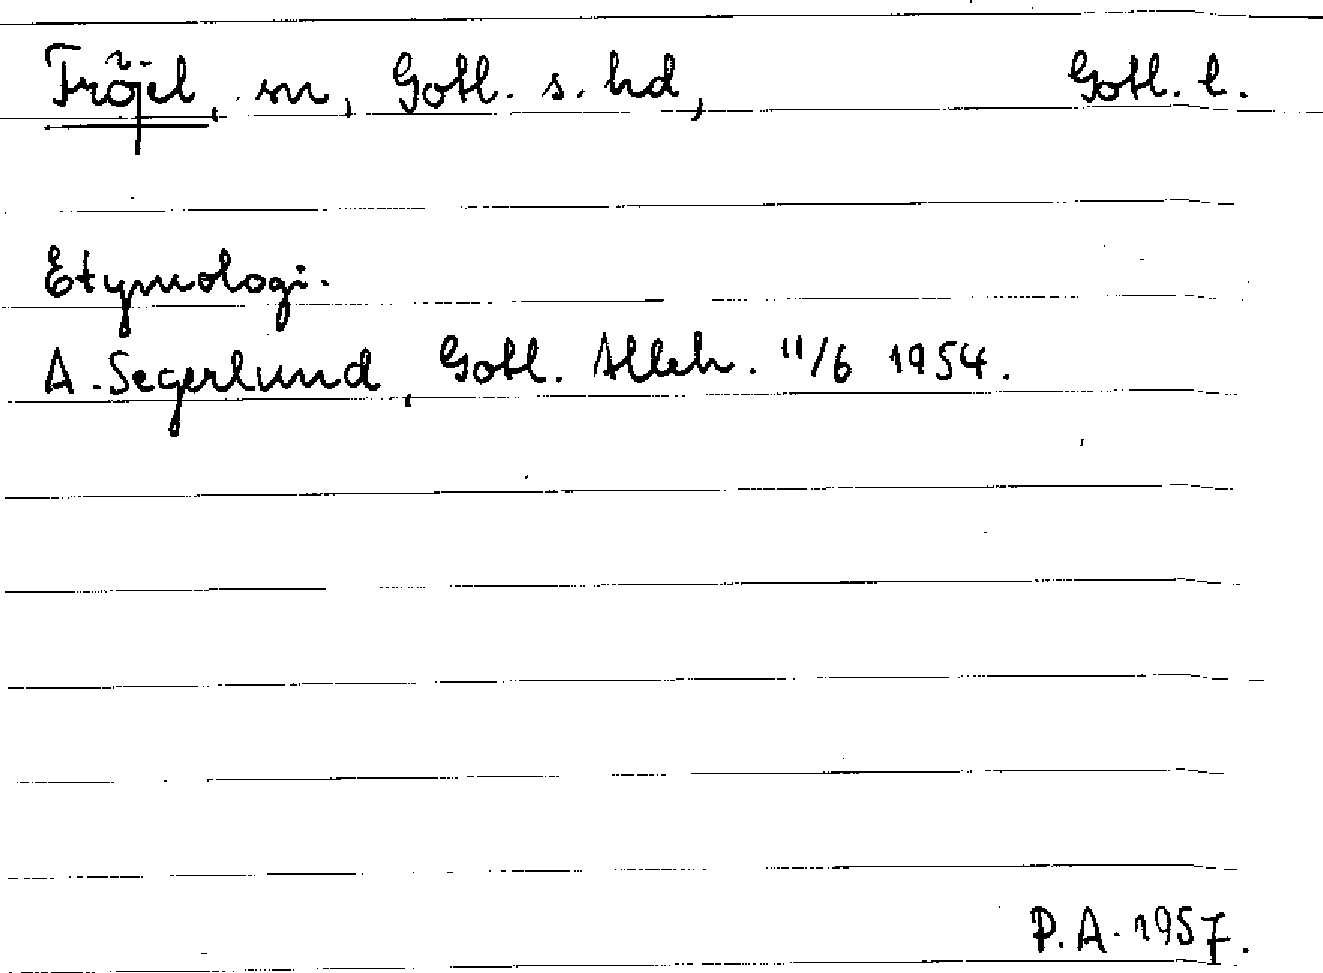 Fröjel, sn, Gotl. s. hd, Gotl. l.
Etymologi.
A. Segerlund, Gotl. Alleh. 11/6 1954.
P. A. 1957.